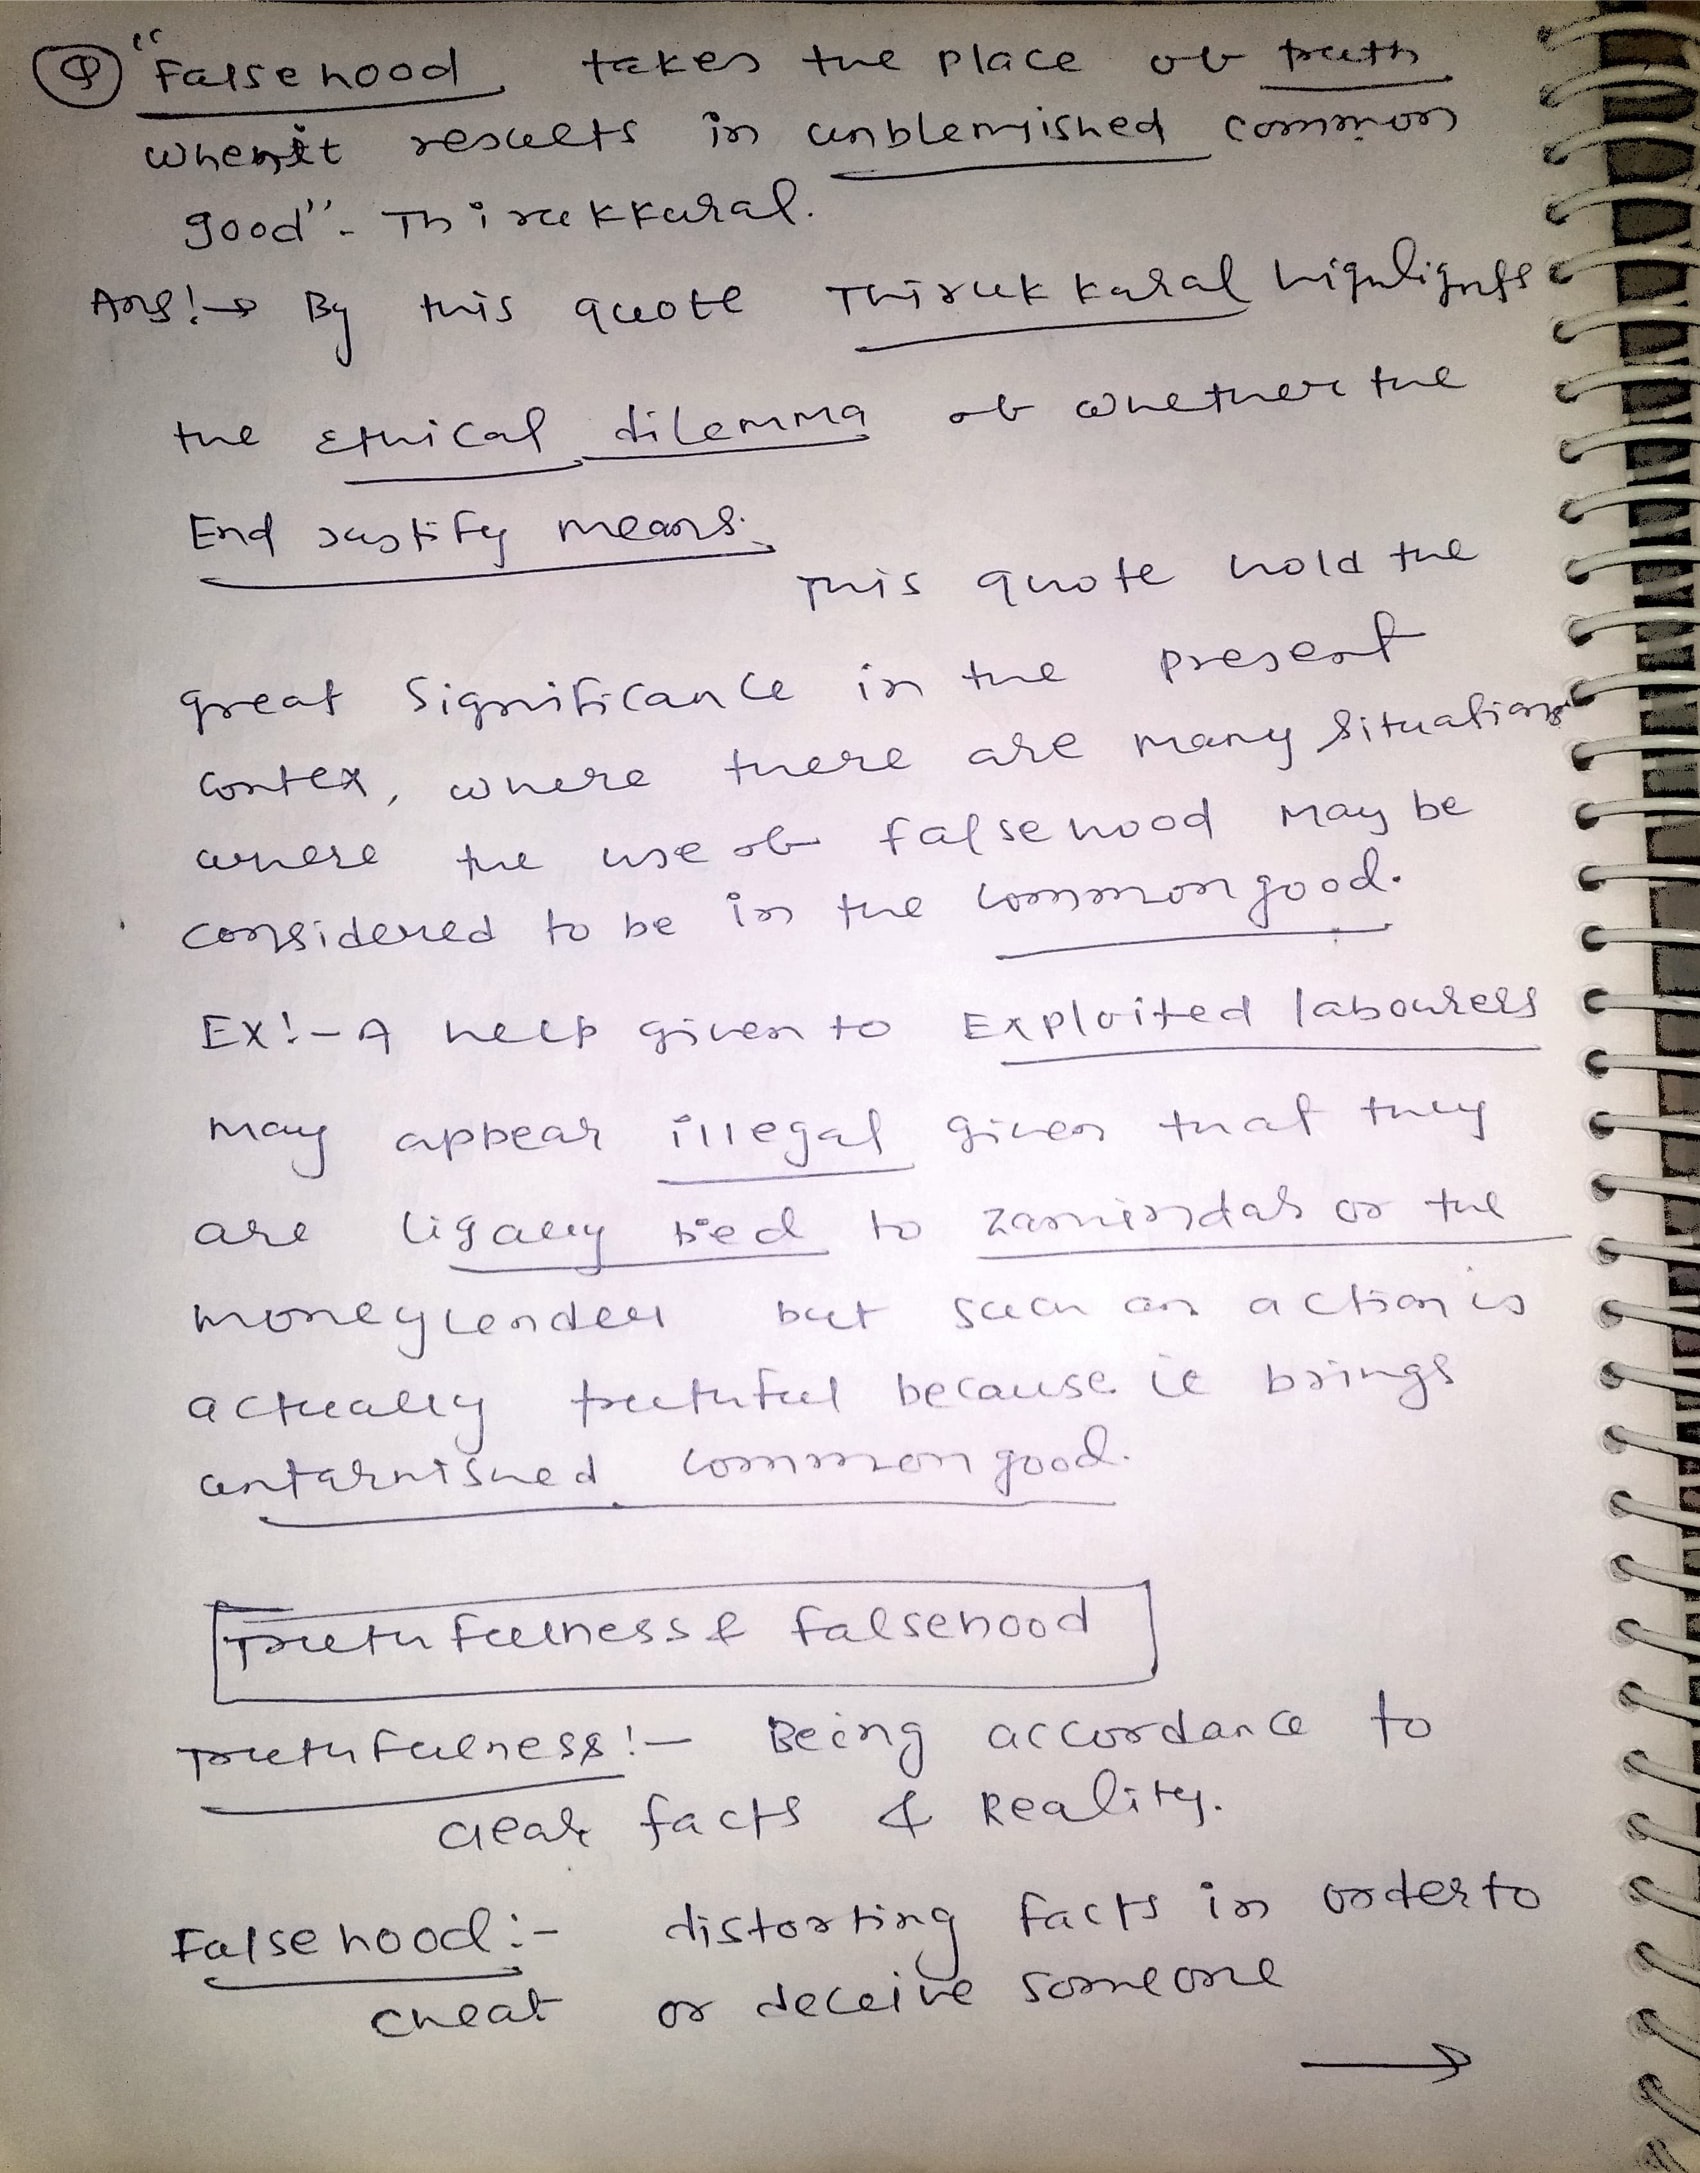 Q "Falsehood takes the place of truth
when it results in unblemished common
good" - Thirukkural.
Ans:→ By this quote Thirukkural highlights
the Ethical dilemma of whether the
End justify means.
This quote hold the
great significance in the present
contex, where there are many situations
where the use of falsehood may be
considered to be in the common good.
Ex:- A help given to Exploited labourers
may appear illegal given that they
are ligally tied to zamindar or the
moneylender but such an action is
actually truthful because it brings
untarnished common good.
Truthfulness & falsehood
Truthfulness:- Being accordance to
clear facts & Reality.
Falsehood:- distorting facts in order to
cheat or deceive someone
→